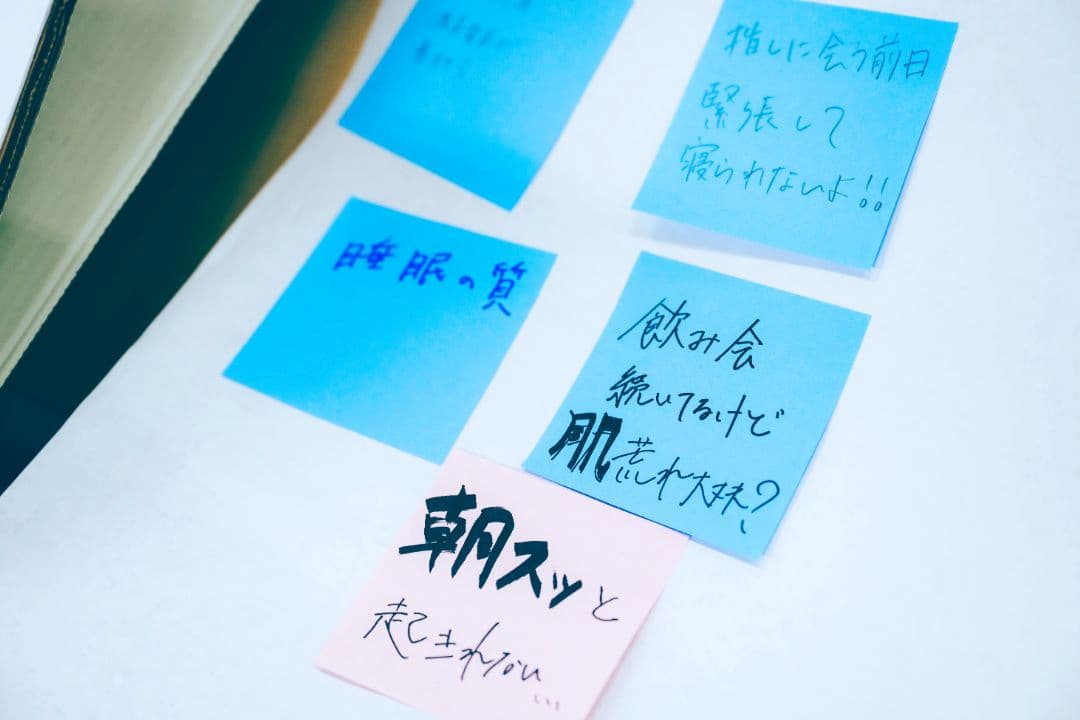 推しに会う前日
緊張して
寝られないよ!!
睡眠の質
飲み会
続いてるけど
肌荒れ大丈夫?
朝スッと
起きれない...